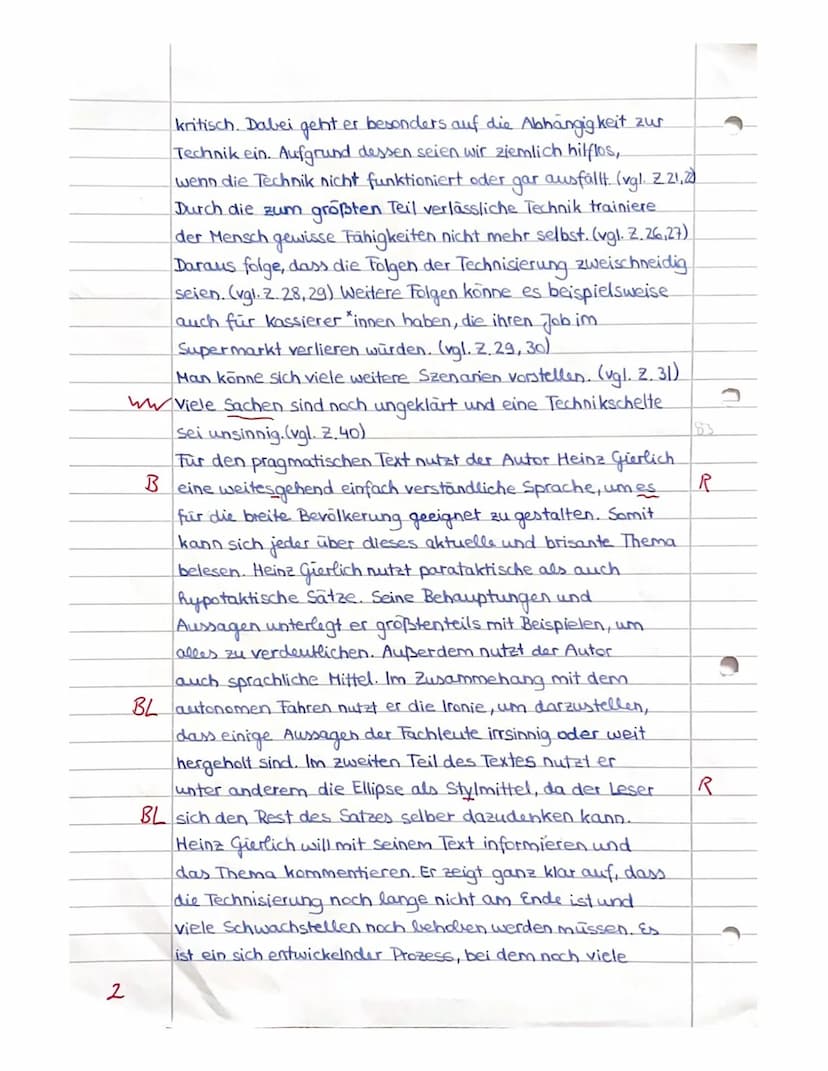 kritisch. Dabei geht er besonders auf die Abhängigkeit zur
Technik ein. Aufgrund dessen seien wir ziemlich hilflos,
wenn die Technik nicht funktioniert oder gar ausfällt. (vgl. Z.21,2)
Durch die zum größten Teil verlässliche Technik trainiere
der Mensch gewisse Fähigkeiten nicht mehr selbst. (vgl. Z.26,27)
Daraus folge, dass die Folgen der Technisierung zweischneidig
seien. (vgl. Z.28,29) Weitere Folgen könne es beispielsweise
auch für Kassierer*innen haben, die ihren Job im
Supermarkt verlieren würden. (vgl. Z.29,30)
Man könne sich viele weitere Szenarien vorstellen. (vgl. Z.31)
WW Viele Sachen sind noch ungeklärt und eine Technikschelte
sei unsinnig. (vgl. Z.40) 83
Für den pragmatischen Text nutzt der Autor Heinz Gierlich
B eine weitesgehend einfach verständliche Sprache, um es R
für die breite Bevölkerung geeignet zu gestalten. Somit
kann sich jeder über dieses aktuelle und brisante Thema
belesen. Heinz Gierlich nutzt parataktische als auch
hypotaktische Sätze. Seine Behauptungen und
Aussagen unterlegt er größtenteils mit Beispielen, um
alles zu verdeutlichen. Außerdem nutzt der Autor
auch sprachliche Mittel. Im Zusammehang mit dem
BL autonomen Fahren nutzt er die Ironie, um darzustellen,
dass einige Aussagen der Fachleute irrsinnig oder weit
hergeholt sind. Im zweiten Teil des Textes nutzt er
unter anderem die Ellipse als Stylmittel, da der Leser R
BL sich den Rest des Satzes selber dazudenken kann.
Heinz Gierlich will mit seinem Text informieren und
das Thema kommentieren. Er zeigt ganz klar auf, dass
die Technisierung noch lange nicht am Ende ist und
viele Schwachstellen noch behoben werden müssen. Es
ist ein sich entwickelnder Prozess, bei dem noch viele
2